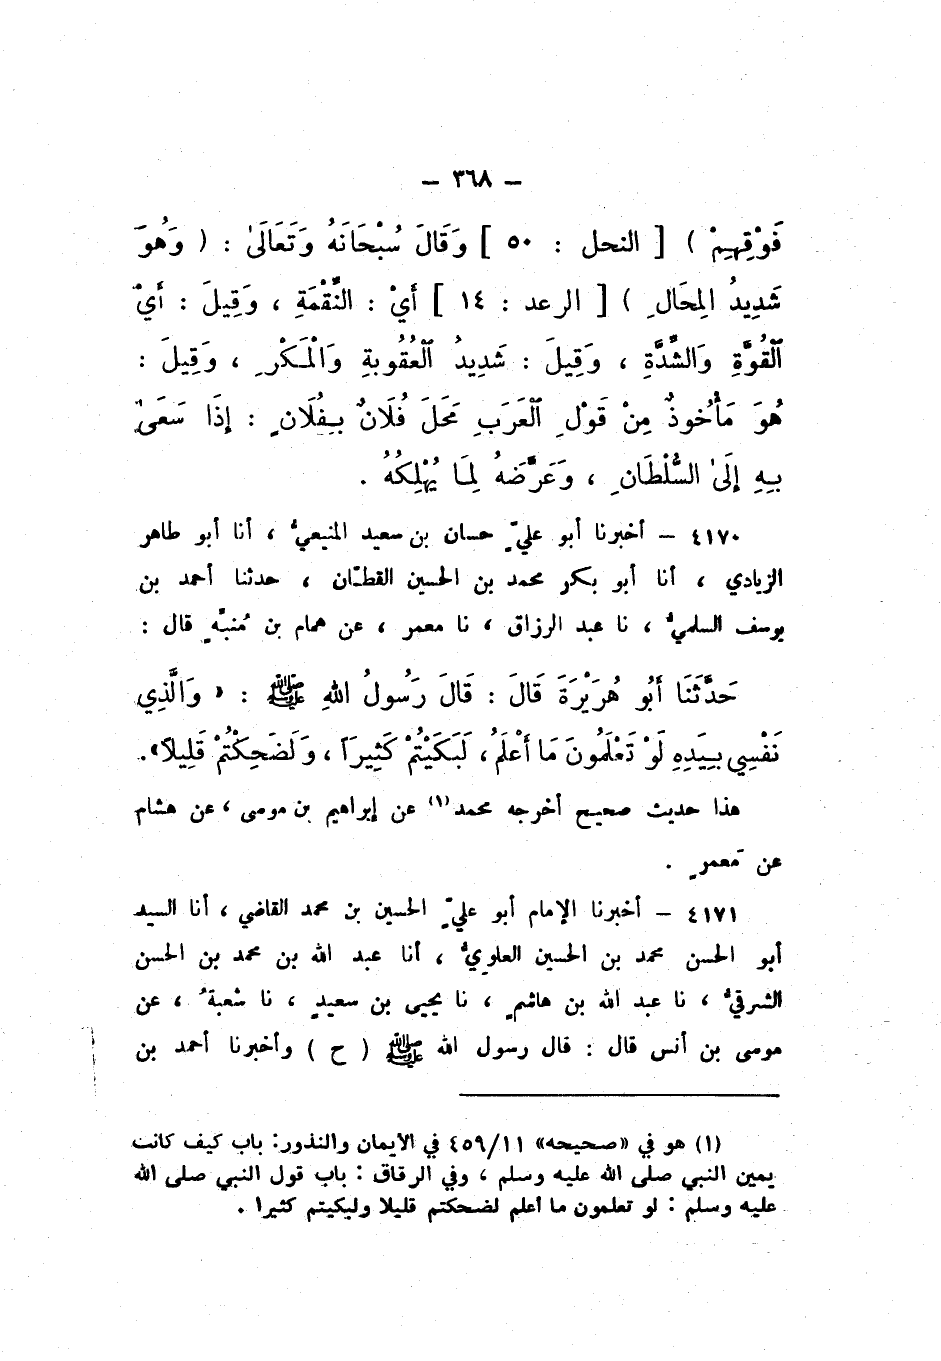 – ٣٦٨ –
فَوْقِهِمْ ) [ النحل : ٥٠ ] وَقَالَ سُبْحَانَهُ وَتَعَالَىٰ : ( وَهُوَ
شَدِيدُ المِحَالِ ) [ الرعد : ١٤ ] أَيْ : النَّقْمَةِ ، وَقِيلَ : أَيْ
الْقُوَّةِ وَالشِّدَّةِ ، وَقِيلَ : شَدِيدُ الْعُقُوبةِ وَالْمَكْرِ ، وَقِيلَ :
هُوَ مَأْخُوذٌ مِنْ قَوْلِ الْعَرَبِ مَحَلَ فُلَانٌ بِفُلَانٍ : إِذَا سَعَىٰ
بِهِ إِلَىٰ السُّلْطَانِ ، وَعَرَّضَهُ لِمَا يُهْلِكُهُ .
٤١٧٠ – أخبرنا أبو عليّ حسان بن سعيد المنيعيُّ ، أنا أبو طاهر
الزيادي ، أنا أبو بكر محمد بن الحسين القطّان ، حدثنا أحمد بن
يوسف السلميُّ ، نا عبد الرزاق ، نا معمر ، عن همام بن مُنبّهٍ قال :
حَدَّثَنَا أَبُو هُرَيْرَةَ قَالَ : قَالَ رَسُولُ اللهِ ﷺ : « وَالَّذِي
نَفْسِي بِيَدِهِ لَوْ تَعْلَمُونَ مَا أَعْلَمُ، لَبَكَيْتُمْ كَثِيرَاً ، وَلَضَحِكْتُمْ قَلِيلاً».
هذا حديث صحيح أخرجه محمد(١) عن إبراهيم بن موسى ، عن هشام
عن مَعمرٍ .
٤١٧١ – أخبرنا الإمام أبو عليّ الحسين بن محمد القاضي ، أنا السيد
أبو الحسن محمد بن الحسين العلويُّ ، أنا عبد الله بن محمد بن الحسن
الشرقيُّ ، نا عبد الله بن هاشمٍ ، نا يحيى بن سعيدٍ ، نا شعبةُ ، عن
موسى بن أنس قال : قال رسول الله ﷺ ( ح ) وأخبرنا أحمد بن
(١) هو في «صحيحه» ٤٥٩/١١ في الايمان والنذور: باب كيف كانت
يمين النبي صلى الله عليه وسلم ، وفي الرقاق : باب قول النبي صلى الله
عليه وسلم : لو تعلمون ما أعلم لضحكتم قليلا ولبكيتم كثيرا .